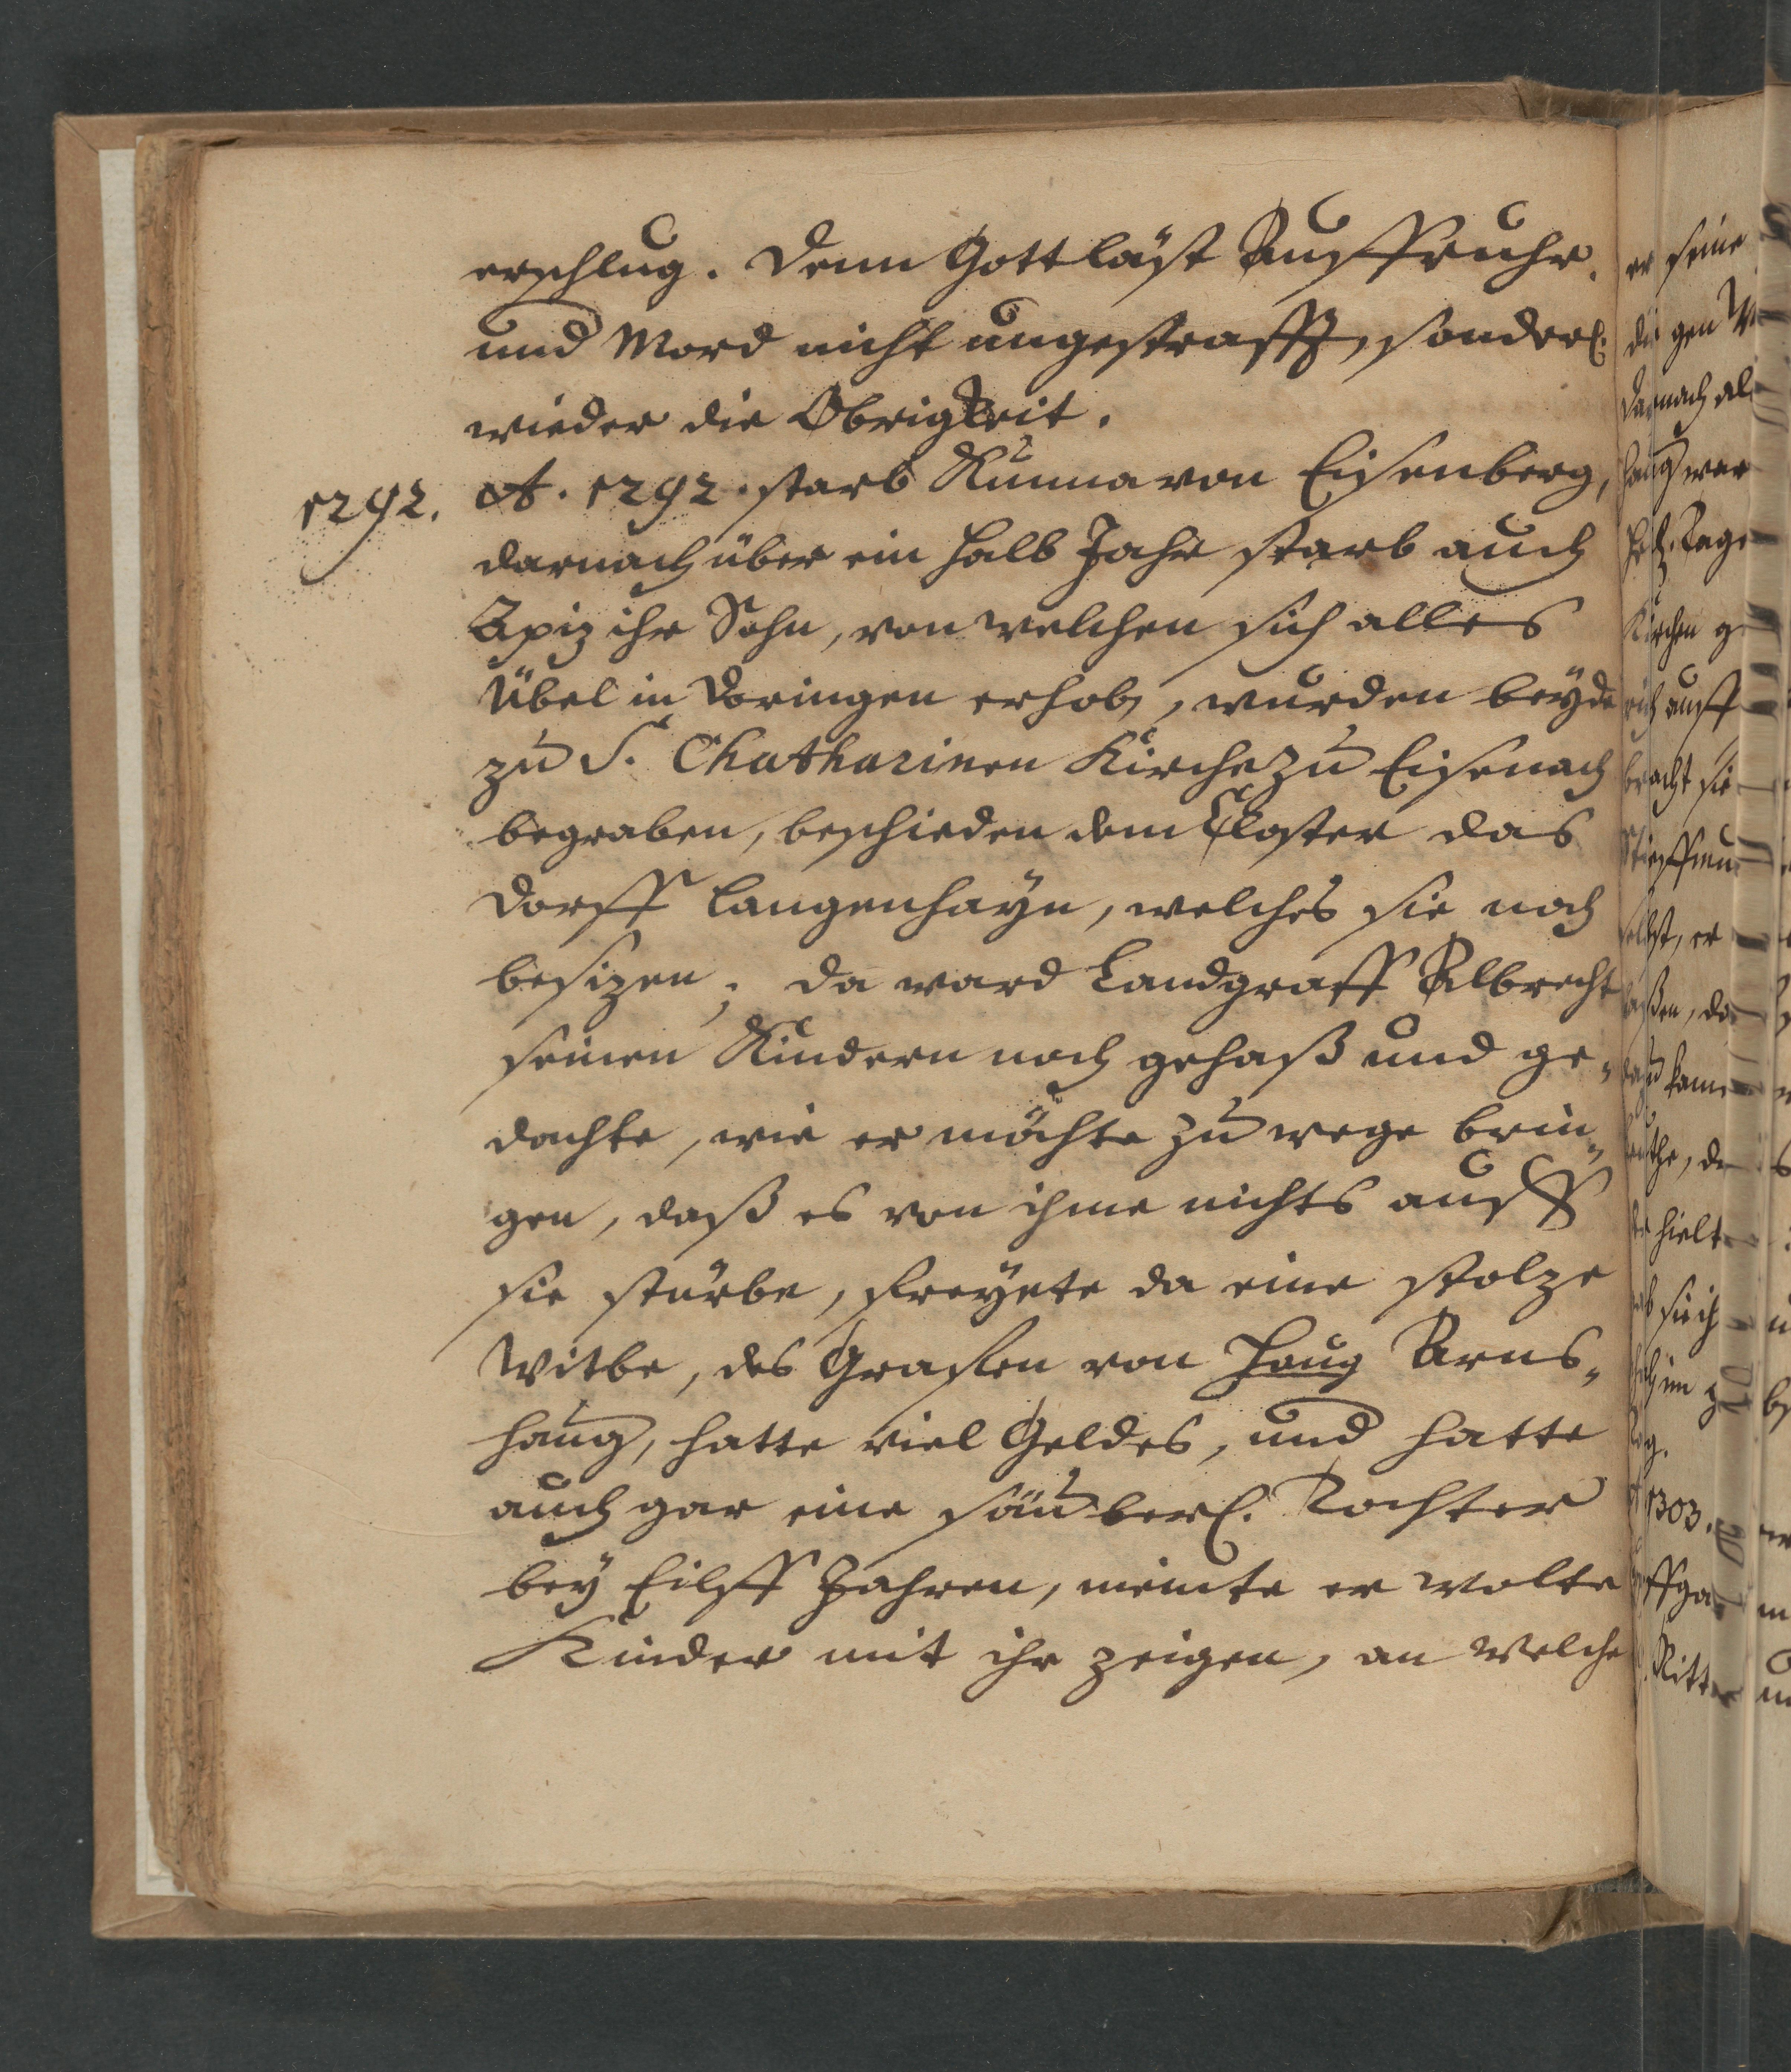 erschlug. Denn Gott läst Auffruhr
und Mord nicht ungestrafft, sonderl.
wieder die Obrigkeit.
1292. A. 1292. starb Kunna von Eisenberg,
darnach über ein halb Jahr starb auch
Apiz ihr Sohn, von welchen sich alles
Übel in Doringen erhob, wurden beyde
zu S. Chatharinen Kirche zu Eisenach
begraben, beschieden dem Closter das
Dorff Langenhayn, welches sie noch
besizen; da ward Landgraff Albrecht
seinen Kindern noch gehaß und ge-
dachte, wie er möchte zu wege brin-
gen, daß es von ihme nichts auff
sie stürbe, freyete da eine stolze
Witbe, des Grafen von Haug Arns-
haug, hatte viel Geldes, und hatte
auch gar eine säuberl. Tochter
bey Eilff Jahren, meinte er wolte
Kinder mit ihr zeigen, an welche
er seine
darnach al
Tage
Kirchen g
auff
bracht sie
selbst, er
hielt
1303.
Ritt